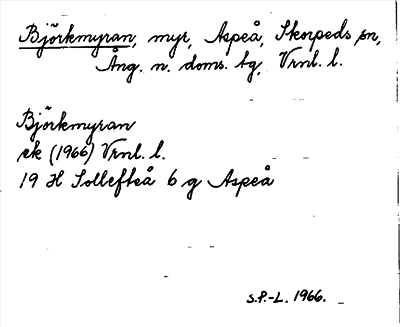 Björkmyran, myr, Aspeå, Skorpeds sn,
Ång. n. doms. tg, Vrnl. l.
Björkmyran
ek (1966) Vrnl. l.
19 H Sollefteå 6 g Aspeå
S.P.-L. 1966.